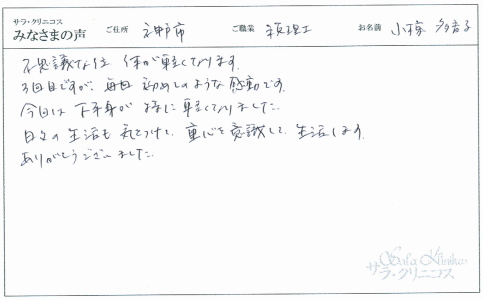 サラ・クリニコス
みなさまの声 ご住所 神戸市 ご職業 税理士 お名前 小 多 子
不思議な位 体が軽くなります。
3回目ですが、毎回 初めてのような感動です。
今回は 下半身が 特に 軽くなりました。
日々の 生活も 気をつけて、重心を 意識して 生活します。
ありがとうございました。
Sala Klinikos
サラ・クリニコス